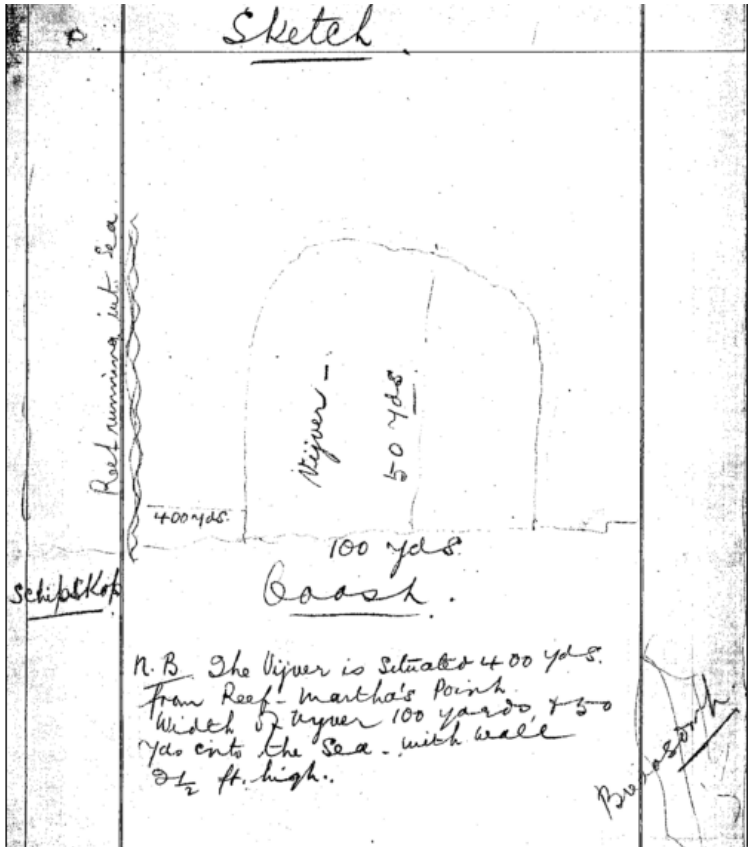 Sketch
Reef running int. Sea.
Vijver -
50 yds
400 yds.
100 yds.
SchipsKop
Coast.
N.B. The Vijver is Situated 400 yds.
from Reef - Martha's Point.
Width of Vyver 100 yards, & 50
yds into the Sea - with wall
2½ ft. high..